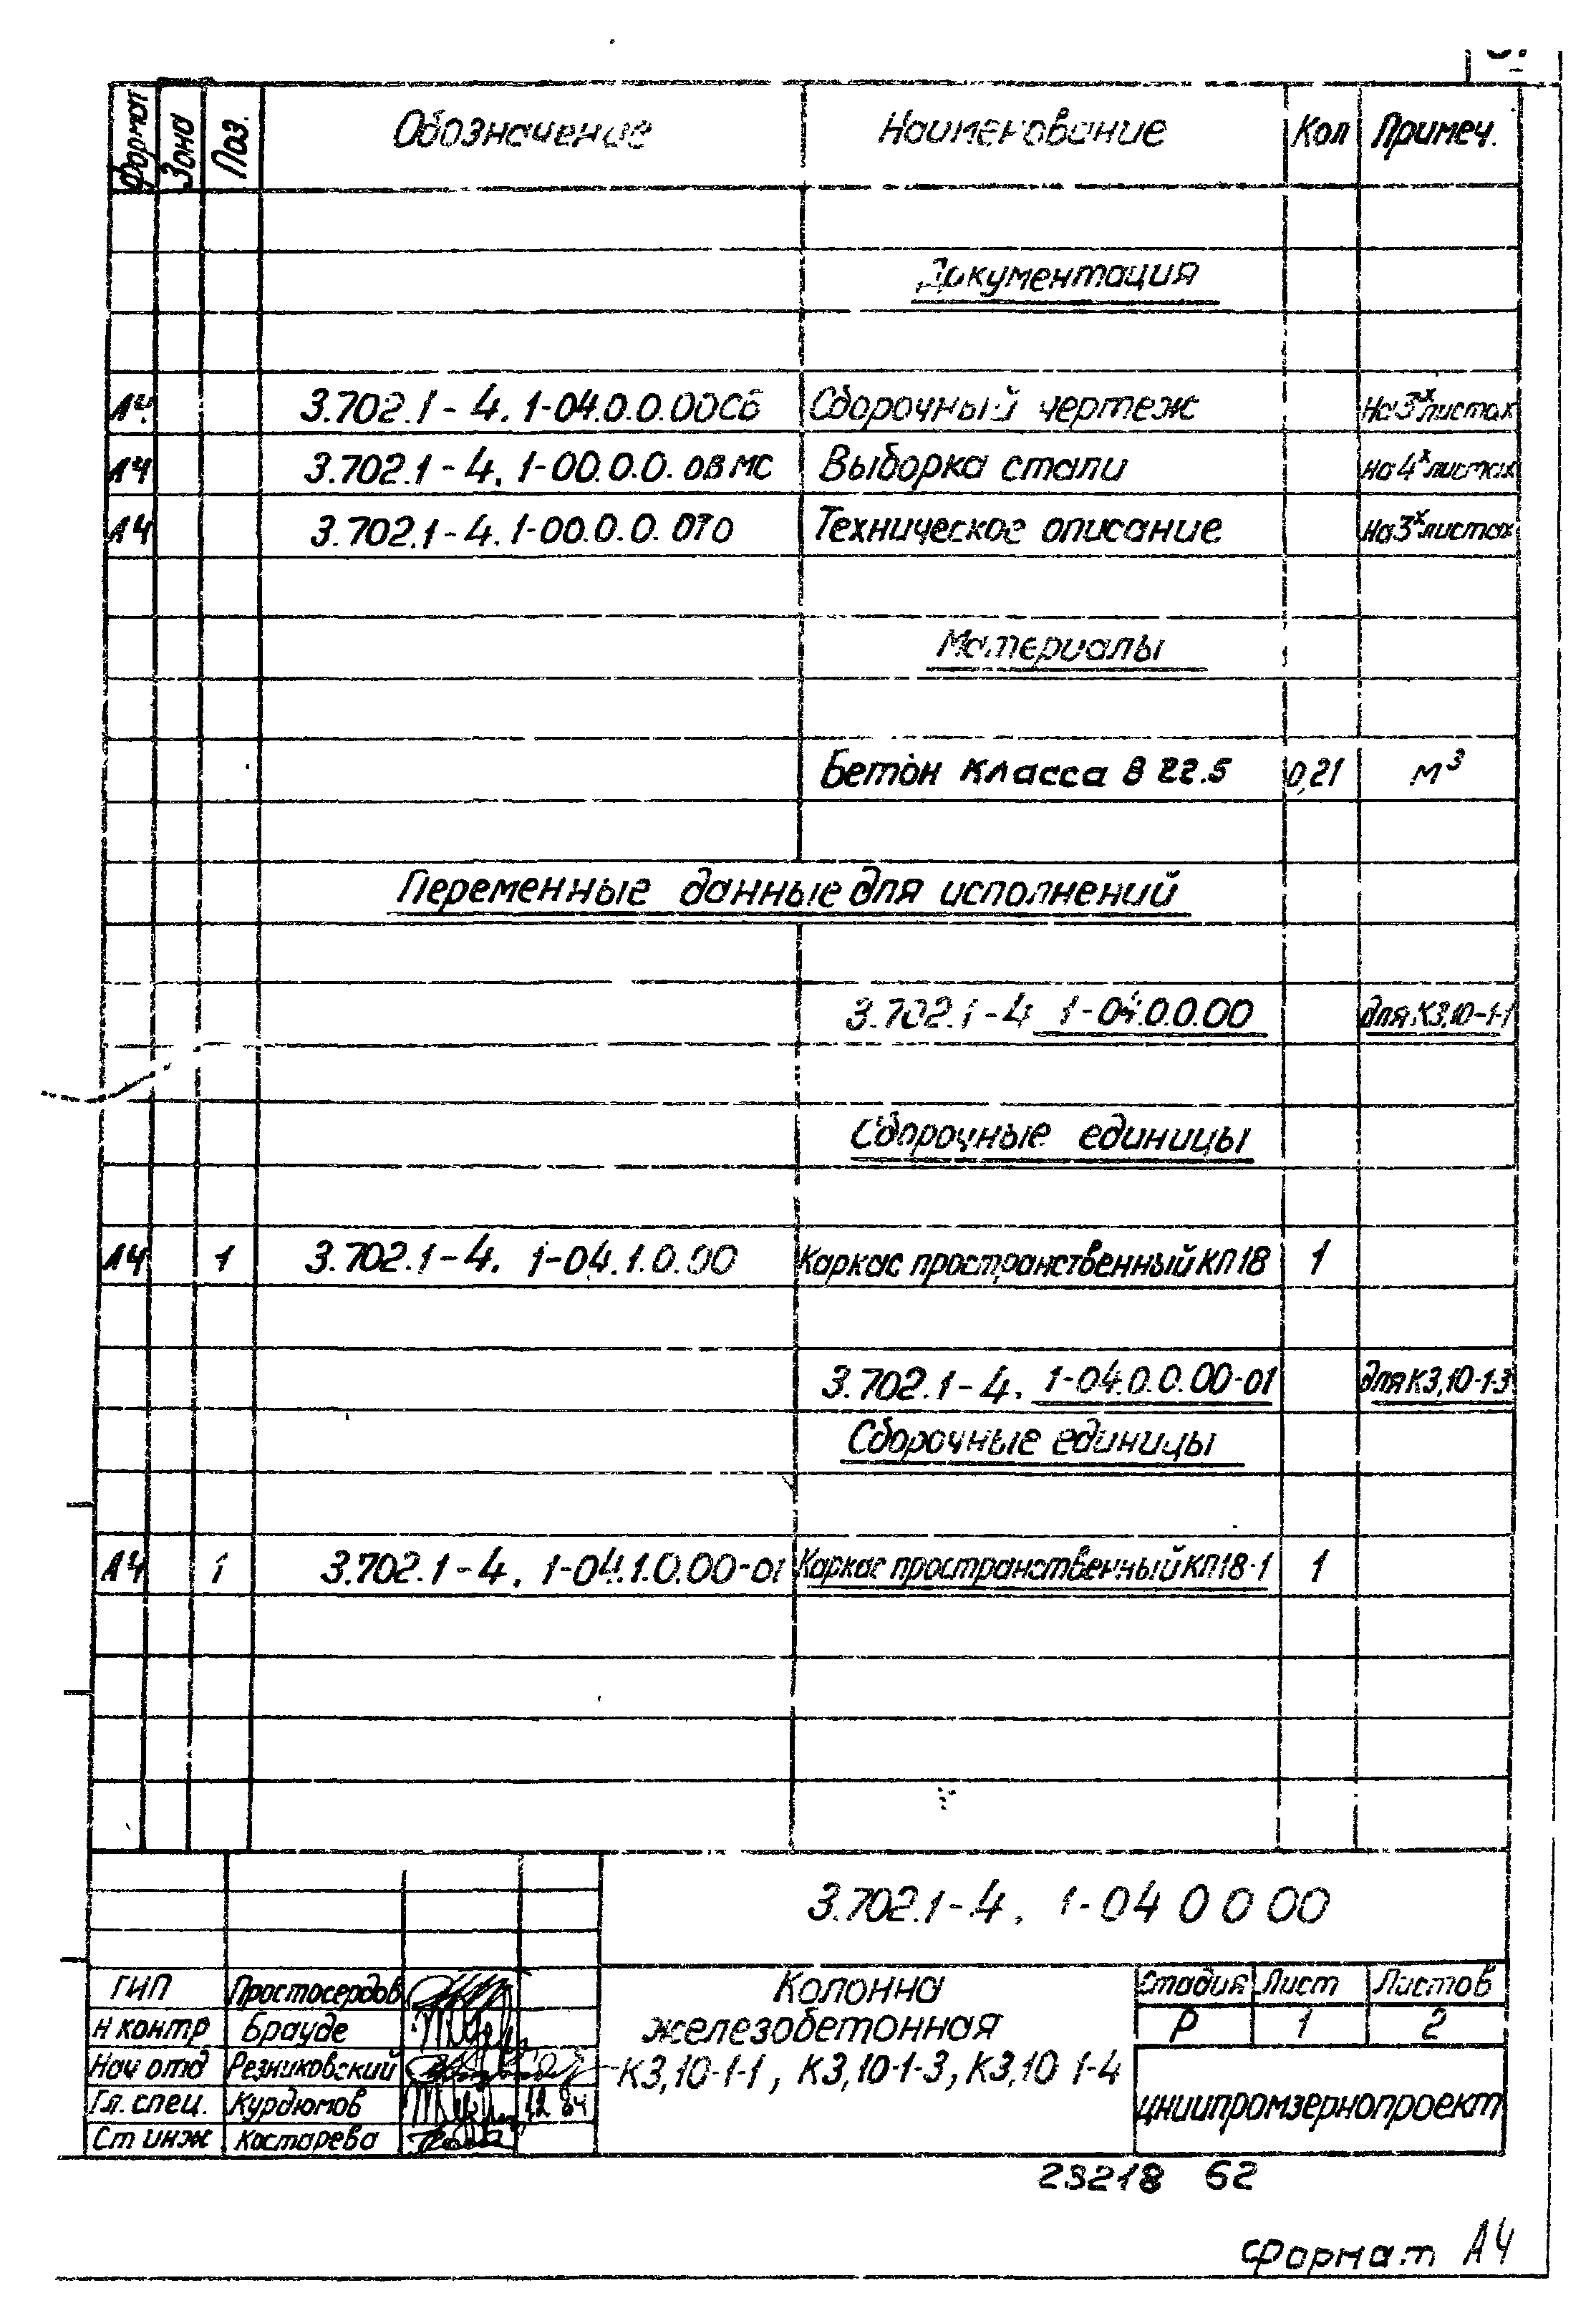 Формат Зона Поз. Обозначение Наименование Кол Примеч.
Документация
А4 3.702.1-4. 1-04.0.0.00СБ Сборочный чертеж На 3х листах
А4 3.702.1-4. 1-00.0.0.0ВМС Выборка стали на 4х листах
А4 3.702.1-4. 1-00.0.0.0ТО Техническое описание на 3х листах
Материалы
Бетон класса В 22.5 0,21 м³
Переменные данные для исполнений
3.702.1-4 1-04.0.0.00 для К3,10-1-1
Сборочные единицы
А4 1 3.702.1-4. 1-04.1.0.00 Каркас пространственный КП18 1
3.702.1-4. 1-04.0.0.00-01 для К3,10-1-3
Сборочные единицы
А4 1 3.702.1-4. 1-04.1.0.00-01 Каркас пространственный КП18-1 1
3.702.1-4. 1-04 0 0 00
ГИП Простосердов
Н контр Брауде
Нач отд Резниковский
Гл. спец. Курдюмов 12 84
Ст инж Костарева
Колонна
железобетонная
К3,10-1-1, К3,10-1-3, К3,10 1-4
Стадия Лист Листов
Р 1 2
цниипромзернопроект
23218 62
Формат А4